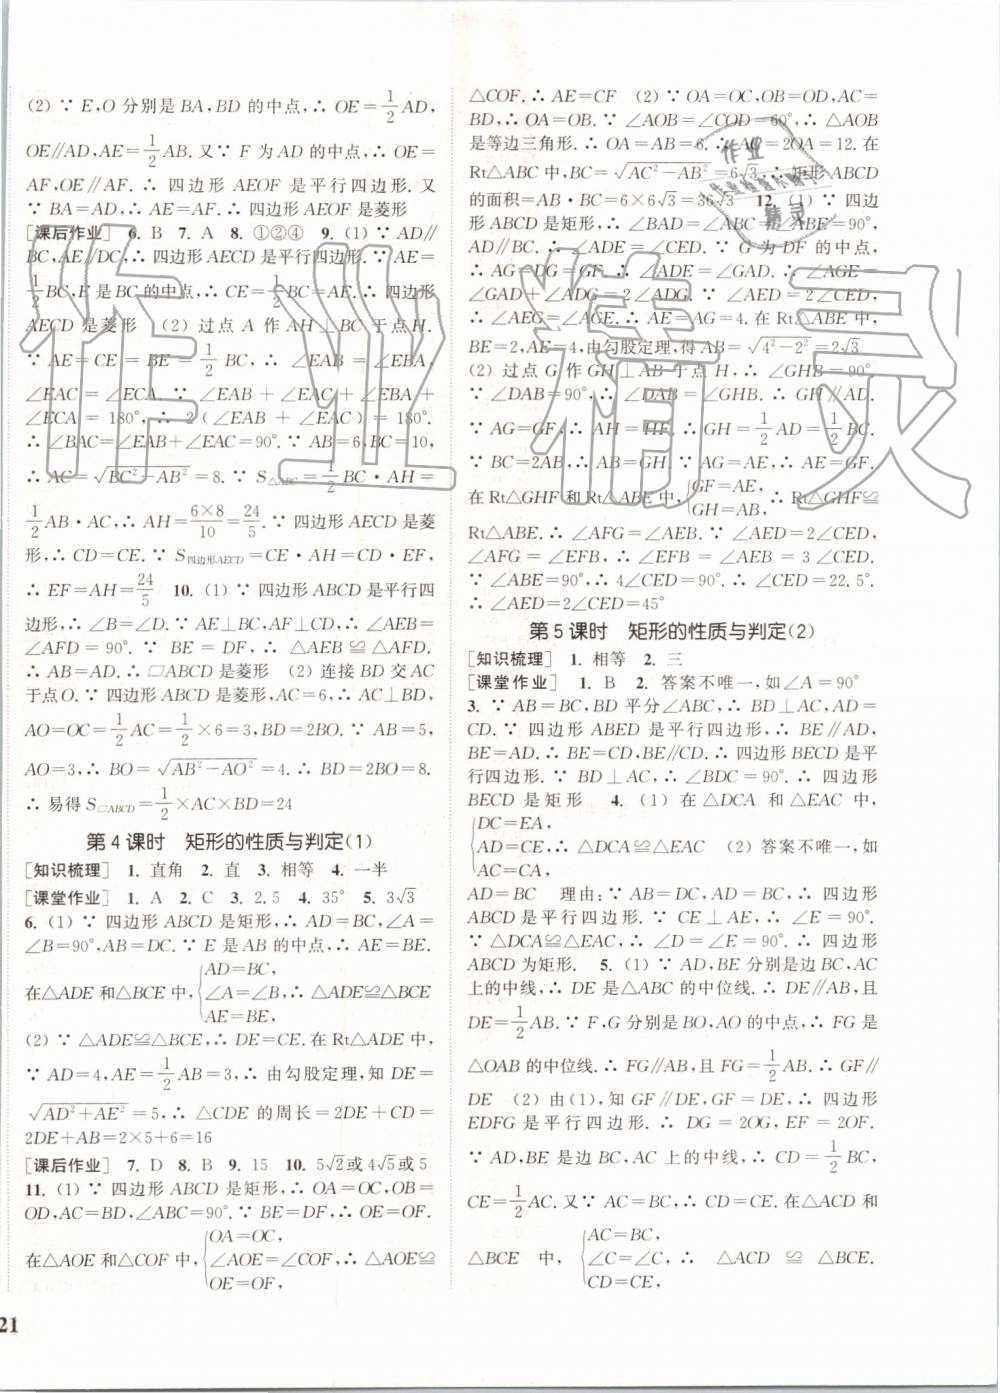 (2) ∵ E,O 分别是 BA,BD 的中点,∴ OE=1/2 AD,
OE∥AD,AE=1/2 AB. 又∵ F 为 AD 的中点,∴ OE=
AF,OE∥AF. ∴ 四边形 AEOF 是平行四边形. 又
∵ BA=AD,∴ AE=AF. ∴ 四边形 AEOF 是菱形
[课后作业] 6. B 7. A 8. ①②④ 9. (1) ∵ AD∥
BC,AE∥DC,∴ 四边形 AECD 是平行四边形. ∵ AE=
1/2 BC,E 是 BC 的中点,∴ CE=1/2 BC=AE. ∴ 四边形
AECD 是菱形 (2) 过点 A 作 AH⊥BC 于点 H.
∵ AE=CE=BE=1/2 BC,∴ ∠EAB=∠EBA,
∠EAC=∠ECA. ∵ ∠EAB+∠EAC+∠EBA+
∠ECA=180°,∴ 2(∠EAB+∠EAC)=180°.
∴ ∠BAC=∠EAB+∠EAC=90°. ∵ AB=6,BC=10,
∴ AC=√(BC²−AB²)=8. ∵ S△ABC=1/2 BC·AH=
1/2 AB·AC,∴ AH=6×8/10=24/5. ∵ 四边形 AECD 是菱
形,∴ CD=CE. ∵ S四边形AECD=CE·AH=CD·EF,
∴ EF=AH=24/5 10. (1) ∵ 四边形 ABCD 是平行四
边形,∴ ∠B=∠D. ∵ AE⊥BC,AF⊥CD,∴ ∠AEB=
∠AFD=90°. ∵ BE=DF,∴ △AEB≌△AFD.
∴ AB=AD. ∴ □ABCD 是菱形 (2) 连接 BD 交 AC
于点 O. ∵ 四边形 ABCD 是菱形,AC=6,∴ AC⊥BD,
AO=OC=1/2 AC=1/2×6=3,BD=2BO. ∵ AB=5,
AO=3,∴ BO=√(AB²−AO²)=4. ∴ BD=2BO=8.
∴ 易得 S□ABCD=1/2×AC×BD=24
第 4 课时 矩形的性质与判定(1)
[知识梳理] 1. 直角 2. 直 3. 相等 4. 一半
[课堂作业] 1. A 2. C 3. 2.5 4. 35° 5. 3√3
6. (1) ∵ 四边形 ABCD 是矩形,∴ AD=BC,∠A=
∠B=90°,AB=DC. ∵ E 是 AB 的中点,∴ AE=BE.
在△ADE 和△BCE 中,{AD=BC, ∠A=∠B, AE=BE, ∴ △ADE≌△BCE
(2) ∵ △ADE≌△BCE,∴ DE=CE. 在 Rt△ADE 中,
∵ AD=4,AE=1/2 AB=3,∴ 由勾股定理,知 DE=
√(AD²+AE²)=5,∴ △CDE 的周长=2DE+CD=
2DE+AB=2×5+6=16
[课后作业] 7. D 8. B 9. 15 10. 5√2或4√5或5
11. (1) ∵ 四边形 ABCD 是矩形,∴ OA=OC,OB=
OD,AC=BD,∠ABC=90°. ∵ BE=DF,∴ OE=OF.
在△AOE 和△COF 中,{OA=OC, ∠AOE=∠COF, OE=OF, ∴ △AOE≌
21
△COF. ∴ AE=CF (2) ∵ OA=OC,OB=OD,AC=
BD,∴ OA=OB. ∵ ∠AOB=∠COD=60°,∴ △AOB
是等边三角形. ∴ OA=AB=6. ∴ AC=2OA=12. 在
Rt△ABC 中,BC=√(AC²−AB²)=6√3. ∴ 矩形 ABCD
的面积=AB·BC=6×6√3=36√3 12. (1) ∵ 四边
形 ABCD 是矩形,∴ ∠BAD=∠ABC=∠ABE=90°,
AD∥BC. ∴ ∠ADE=∠CED. ∵ G 为 DF 的中点,
∴ AG=DG=GF. ∴ ∠ADE=∠GAD. ∴ ∠AGE=
∠GAD+∠ADG=2∠ADG. ∵ ∠AED=2∠CED,
∴ ∠AEG=∠AGE. ∴ AE=AG=4. 在 Rt△ABE 中,
BE=2,AE=4,由勾股定理,得 AB=√(4²−2²)=2√3
(2) 过点 G 作 GH⊥AB 于点 H,∴ ∠GHB=90°.
∵ ∠DAB=90°,∴ ∠DAB=∠GHB. ∴ GH∥AD.
∵ AG=GF,∴ AH=HF. ∴ GH=1/2 AD=1/2 BC.
∵ BC=2AB,∴ AB=GH. ∵ AG=AE,∴ AE=GF.
在 Rt△GHF 和 Rt△ABE 中,{GF=AE, GH=AB, ∴ Rt△GHF≌
Rt△ABE. ∴ ∠GFA=∠AEB. ∵ ∠AED=2∠CED,
∠AFG=∠EFB,∴ ∠EFB=∠AEB=3∠CED.
∵ ∠ABE=90°,∴ 4∠CED=90°. ∴ ∠CED=22.5°.
∴ ∠AED=2∠CED=45°
第 5 课时 矩形的性质与判定(2)
[知识梳理] 1. 相等 2. 三
[课堂作业] 1. B 2. 答案不唯一,如∠A=90°
3. ∵ AB=BC,BD 平分∠ABC,∴ BD⊥AC,AD=
CD. ∵ 四边形 ABED 是平行四边形,∴ BE∥AD,
BE=AD. ∴ BE=CD,BE∥CD. ∴ 四边形 BECD 是平
行四边形. ∵ BD⊥AC,∴ ∠BDC=90°. ∴ 四边形
BECD 是矩形 4. (1) 在△DCA 和△EAC 中,
{DC=EA, AD=CE, AC=CA, ∴ △DCA≌△EAC (2) 答案不唯一,如
AD=BC 理由:∵ AB=DC,AD=BC,∴ 四边形
ABCD 是平行四边形. ∵ CE⊥AE,∴ ∠E=90°.
∵ △DCA≌△EAC,∴ ∠D=∠E=90°. ∴ 四边形
ABCD 为矩形. 5. (1) ∵ AD,BE 分别是边 BC,AC
上的中线,∴ DE 是△ABC 的中位线. ∴ DE∥AB,且
DE=1/2 AB. ∵ F,G 分别是 BO,AO 的中点,∴ FG 是
△OAB 的中位线. ∴ FG∥AB,且 FG=1/2 AB. ∴ GF∥
DE (2) 由(1),知 GF∥DE,GF=DE,∴ 四边形
EDFG 是平行四边形. ∴ DG=2OG,EF=2OF.
∵ AD,BE 是 BC,AC 上的中线,∴ CD=1/2 BC,
CE=1/2 AC. 又∵ AC=BC,∴ CD=CE. 在△ACD 和
△BCE 中,{AC=BC, ∠C=∠C, CD=CE, ∴ △ACD≌△BCE.
作业
精灵
作业精灵